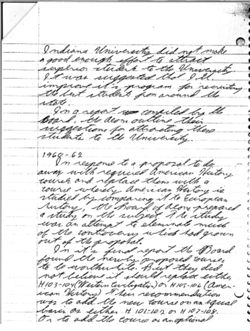 Indiana University did not make
a good enough effort to attract
superior students to the University.
It was suggested that I.U.
improve it's program for recruiting
the best students from around the
state.
In a report compiled by the
Board, the deans outline their
suggestions for attracting these
students to the University.
1960-62
In response to a proposal to do
away with required American History
courses and replace them with a
course whereby American History is
studied by comparing it to European
history, the Board of Deans prepared
a study on the subject. The study
was an attempt to eliminate some
of the controversy which had grown
out of the proposal.
In its final report the Board
found the newly proposed course
to be worthwhile. But they did
not believe it should replace either
H103-104 (Western Civilization) or H105-106 (Amer-
ican History). Their recommendation
was to add the new course on an equal
basis as either H101-102 or H107-108.
Or to add the course as an optional